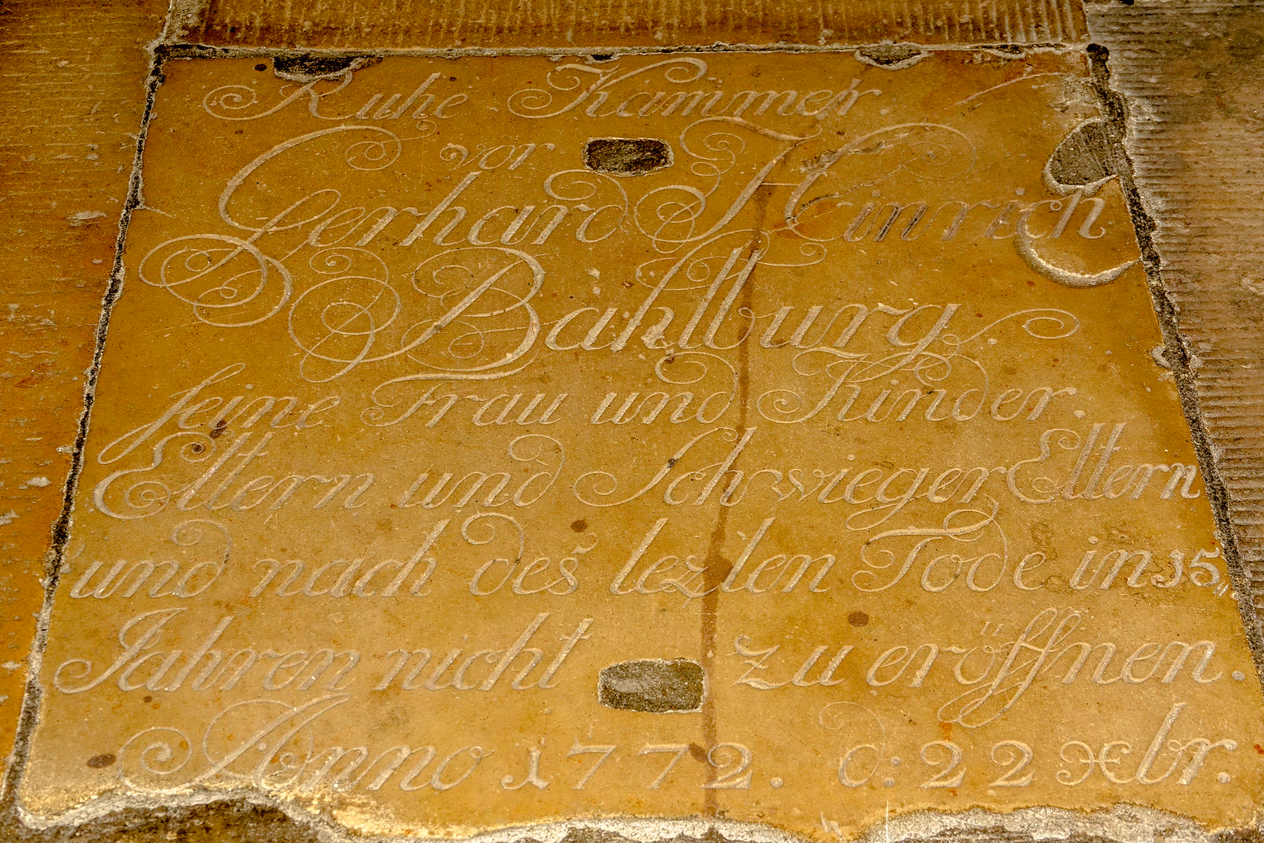 Ruhe Kammer
vor
Gerhard Heinrich
Bahlburg
seine Frau und Kinder.
Eltern und Schwieger Eltern
und nach des lezten Tode in 15,
Jahren nicht zu eröffnen.
Anno 1772. d: 22 Xbr.